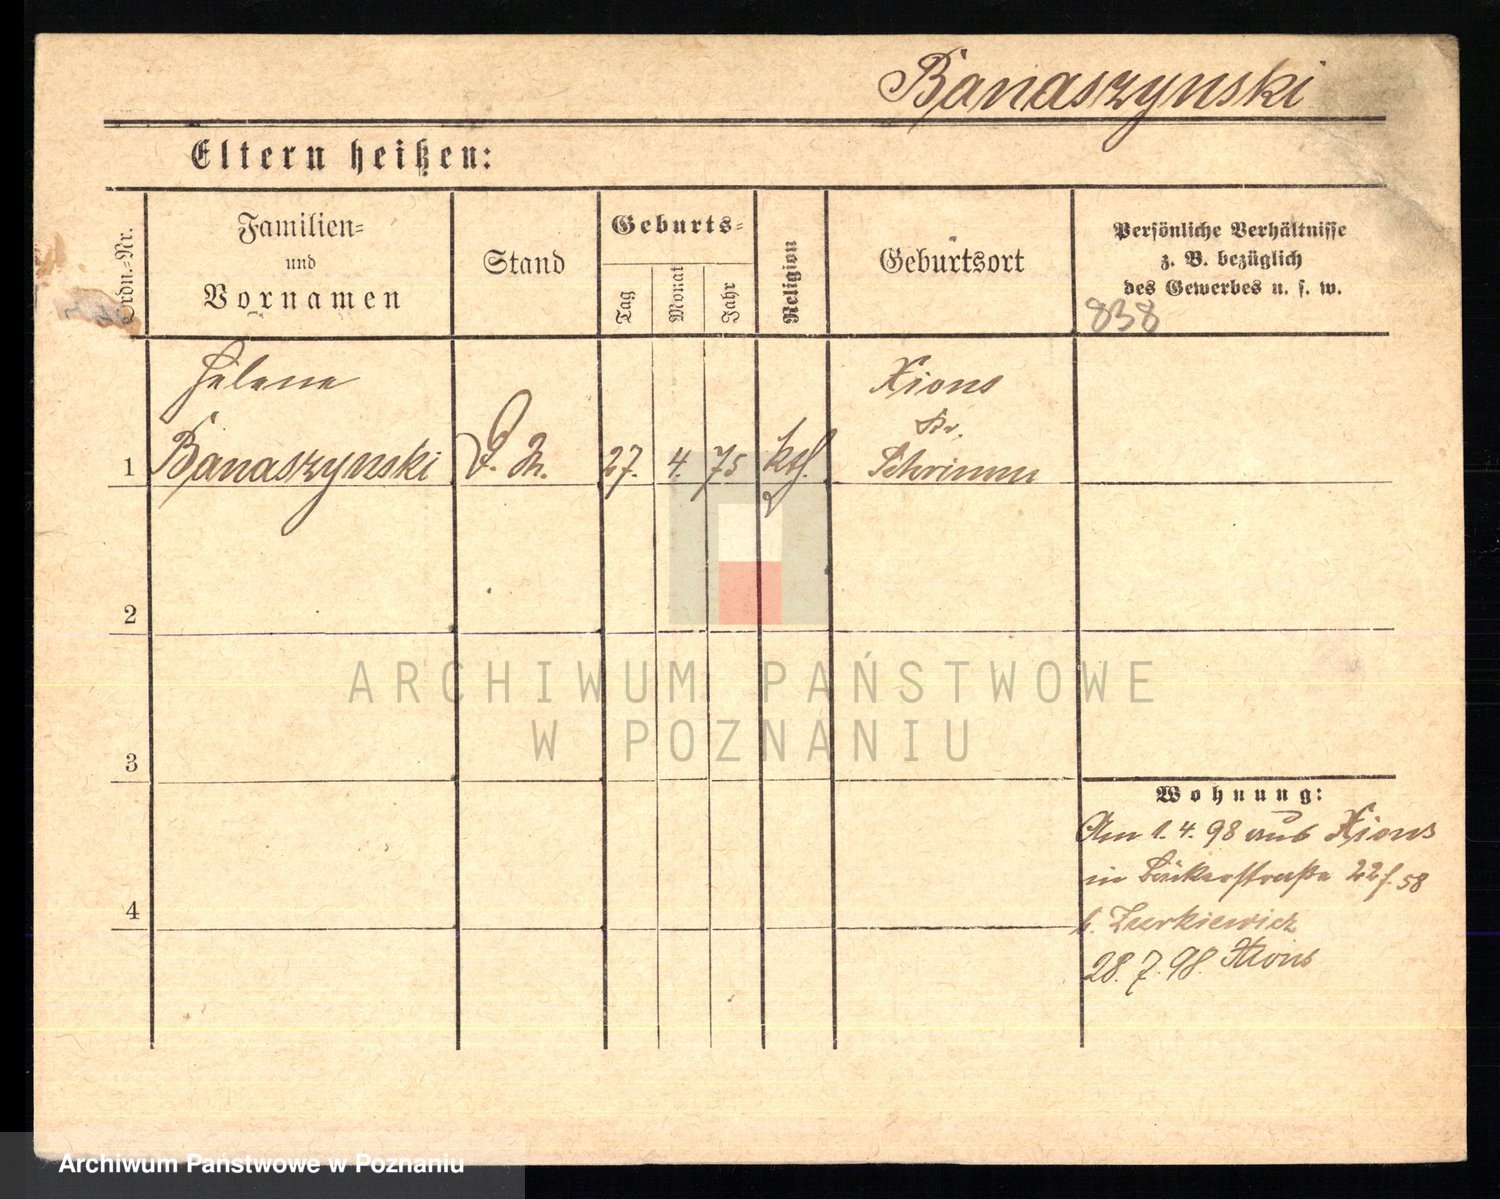 Banaszynski
Eltern heißen:
Ordn.-Nr.
Familien-
und
Vornamen
Stand
Geburts-
Tag
Monat
Jahr
Religion
Geburtsort
Persönliche Verhältnisse
z. B. bezüglich
des Gewerbes u. s. w.
838
Helene
Xions
Kr.
1 Banaszynski 27. 4. 75 kth. Schrimm
2
ARCHIWUM PAŃSTWOWE
W POZNANIU
3
Wohnung:
Am 1. 4. 98 aus Xions
in Bäckerstraße 22 58
4
b. Zurkiewicz
28. 7. 98. Xions
Archiwum Państwowe w Poznaniu